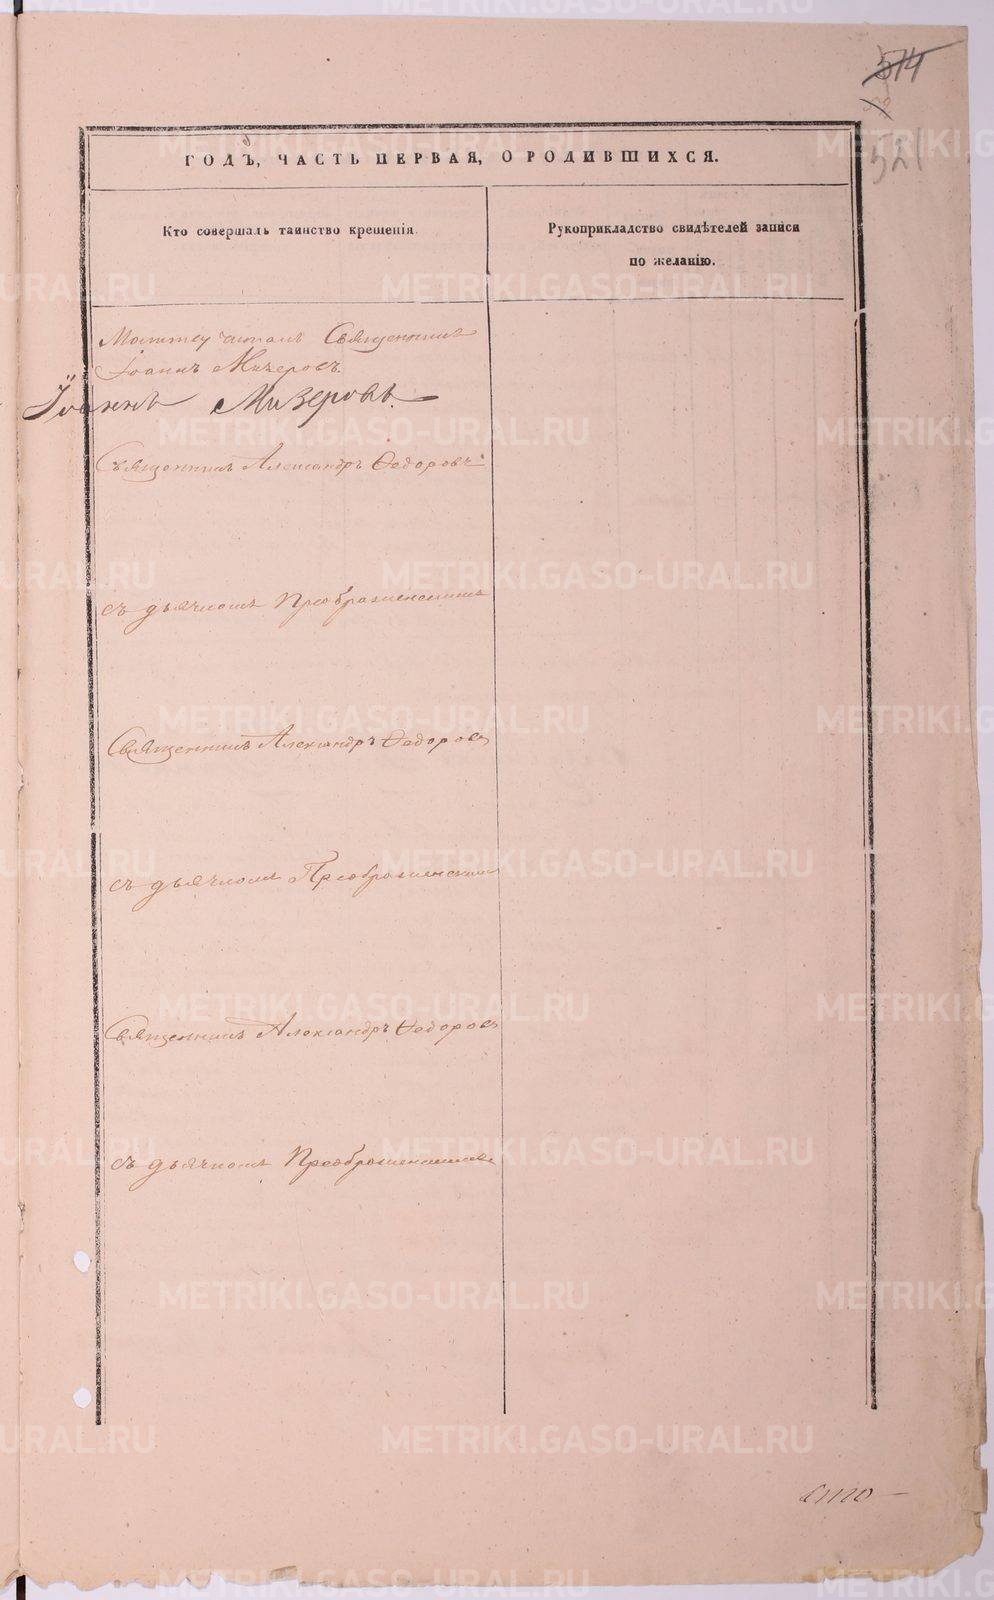 574
521
ГОДЪ, ЧАСТЬ ПЕРВАЯ, О РОДИВШИХСЯ.
Кто совершалъ таинство крещенія.
Рукоприкладство свидѣтелей записи
по желанію.
Молитву читалъ Священникъ
Іоаннъ Мизеровъ.
Іоаннъ Мизеровъ.
Священникъ Александръ Ѳедоровъ
съ дьячкомъ Преображенскимъ
Священникъ Александръ Ѳедоровъ
съ дьячкомъ Преображенскимъ
Священникъ Александръ Ѳедоровъ
съ дьячкомъ Преображенскимъ
METRIKI.GASO-URAL.RU